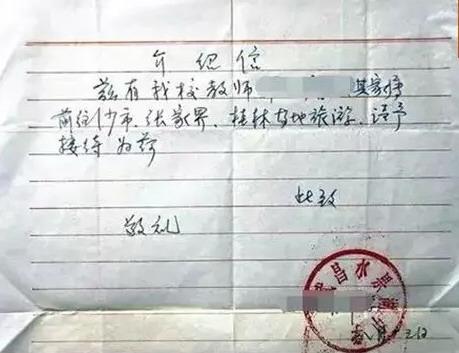 介绍信
兹有我校教师
其家停
前往沙市、张家界、桂林等地旅游、请予
接待为荷
此致
敬礼
昌水果湖